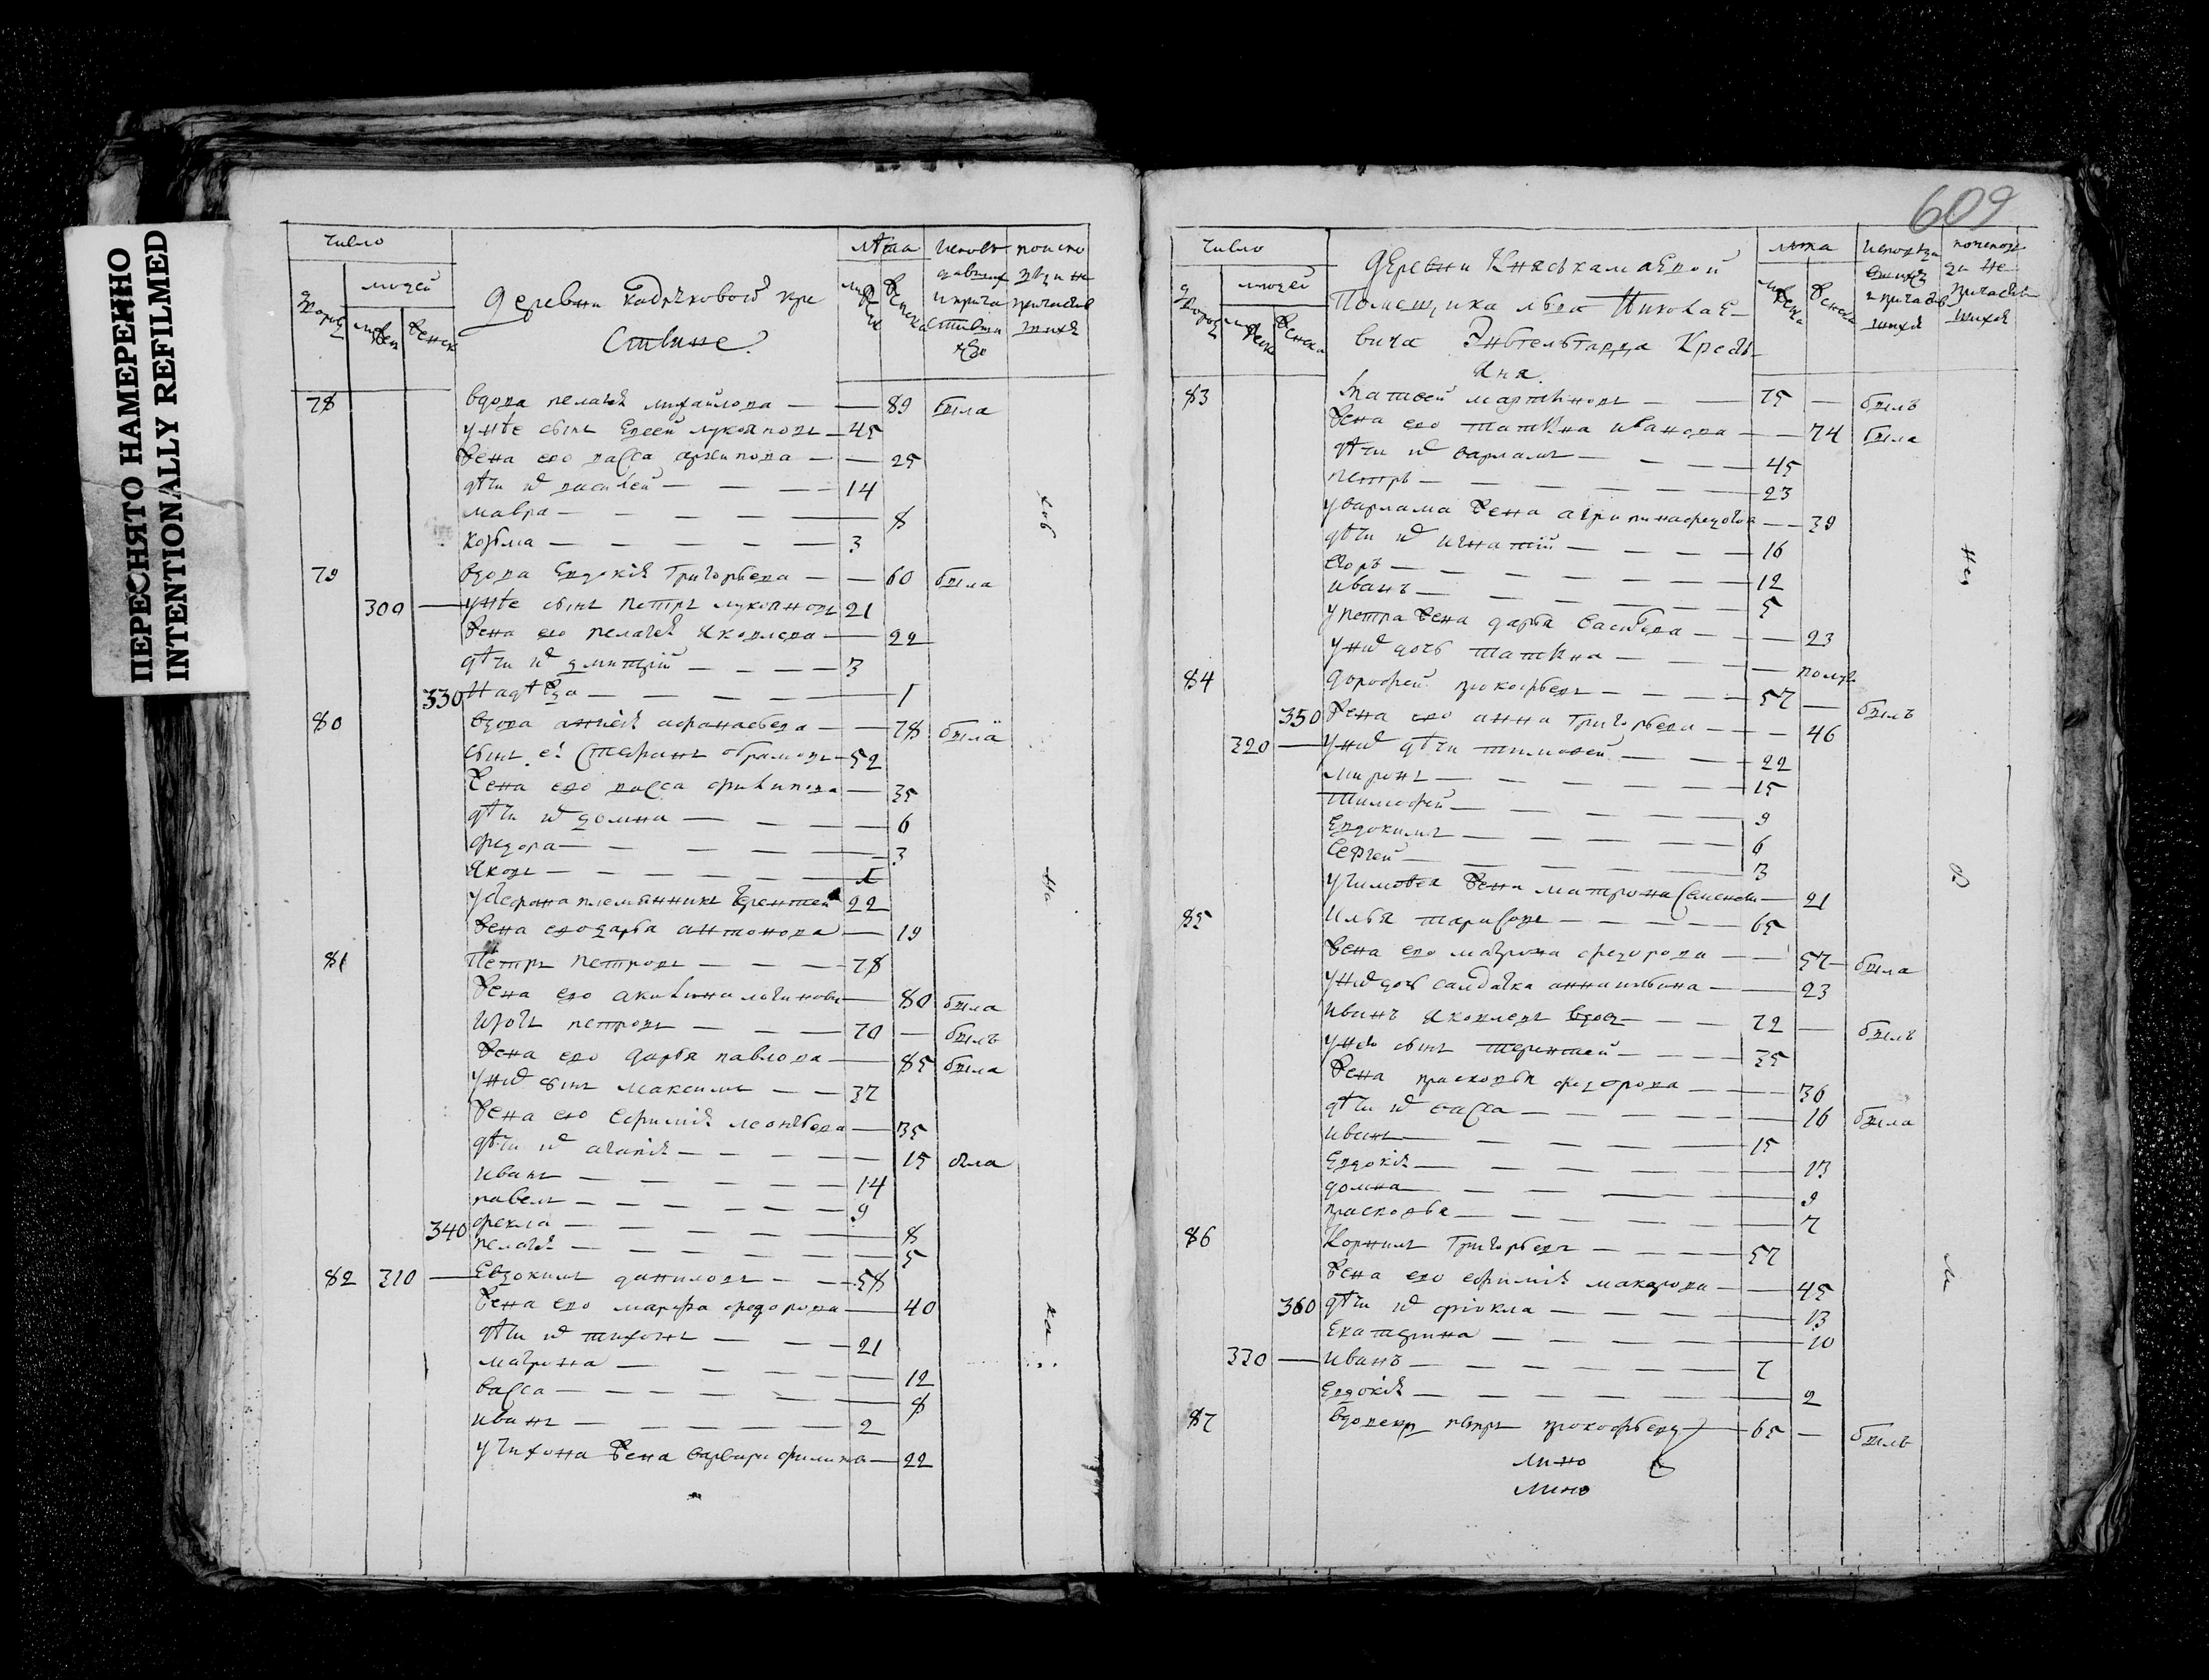 ПЕРЕСНЯТО НАМЕРЕННО
INTENTIONALLY REFILMED
число
людей
дворов
мужеск
женск
деревни кадряковой кре
стьяне
лѣта
78
вдова пелагея михайлова — — 89 была
у нее сынъ Евсей лукояновъ — 45
жена его васса архипова — — 25
дѣти их василей — — — 14
мавра — — — — 8
козьма — — — — 3
79
вдова Евдокия Григорьева — — 60 была
309 — у нее сынъ петръ лукояновъ 21
жена его пелагея яковлева — 22
дѣти их дмитрий — — — 3
330 Надежда — — — — 1
80
вдова анисия афанасьева — — 78 была
сынъ ее Стефанъ абрамовъ — 52
жена его васса филипова — 35
дѣти их домна — — — 6
федора — — — — 3
яковъ — — — — 1
у Стефана племянникъ терентей 22
жена его дарья антонова — 19
81
Петръ Петровъ — — — 78
жена его акилина логинова — 80 была
петровъ — — — 70 — былъ
жена его дарья павлова — 85 была
у них сынъ максимъ — — 37
жена его ефимия леонтьева — 35
дѣти их агапия — — — — 15 была
иванъ — — — — 14
павелъ — — — — 9
340 фекла — — — — 8
пелагея — — — — 5
82 310 — Евдокимъ даниловъ — — 58
жена его марфа федорова — 40
дѣти их тихонъ — — — 21
матрона — — — — 12
васса — — — — 8
иванъ — — — — 2
у тихона жена варвара филипова — 22
609
число
людей
дворов
мужеск
женска
деревни Княськамаевой
Помещика льва Николае-
вича Энгельгарда Кресть-
яня
лѣта
83
Матвей мартыновъ — — 75 — былъ
жена его татияна иванова — — 74 была
дѣти их варламъ — — — 45
петръ — — — — 23
у варлама жена агрипина федотова — — 39
дѣти их игнатий — — — 16
егоръ — — — — 12
иванъ — — — — 5
у петра жена дарья василева — — 23
у них дочь татияна — — — полуг
84
дорофей прокофьевъ — — — 57 — былъ
350 жена его анна григорьева — — 46
320 — у них дѣти тимофей — — 22
миронъ — — — — 15
тимофей — — — — 9
Евдокимъ — — — — 6
Сергей — — — — 3
у тимофея жена матрона Семенова — 21
85
илья тарасовъ — — — 65
жена его матрона федорова — — 57 — была
у них дочь салдатка анна ильина — — 23
иванъ яковлевъ вдов — — 72 — былъ
у него сынъ терентей — — — 35
жена прасковья федорова — — 36
дѣти их васса — — — — 16 была
иванъ — — — — 15
Евдокия — — — — 13
домна — — — — 9
прасковья — — — — 7
86
Корнилъ Григорьевъ — — — 57
жена его ефимия макарова — — 45
360 дѣти их фиокла — — — 13
Екатерина — — — — 10
330 — иванъ — — — — 7
Евдокия — — — — 2
87
вдовецъ петръ прокофьевъ — 65 — былъ